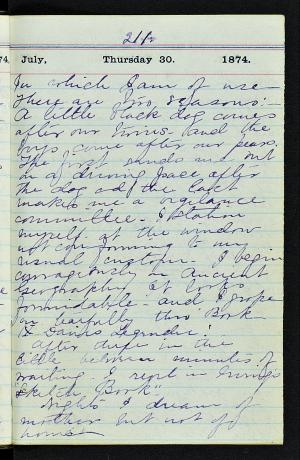 21
74 July, Thursday 30. 1874.
In which I am of use
There are two seasons:-
A little black dog comes
after our and the
boys come after our pears.
The first sends me out
in a driving pace after
the dog and the last
makes me a vigilance
committee. I station
myself at the window
not conforming to my
usual custom. I begin
courageously in Ancient
Geography. It looks
formidable and I grope
on tearfully thro' Book
B. Davies Legendre!
After dust in the
between minutes of
waiting I rept in Irving's
"Sketch Book"
Nights I dream of
mother but not of
home